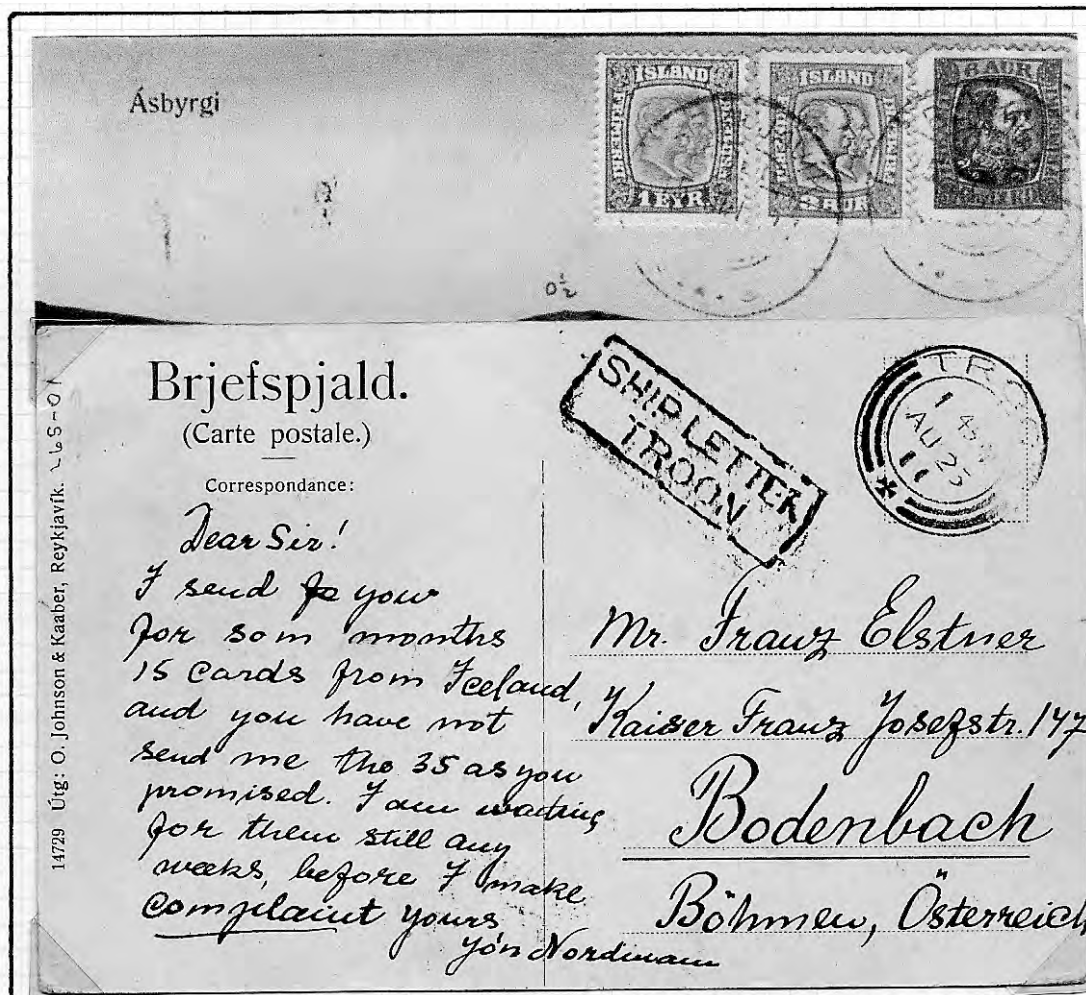 Ásbyrgi
ÍSLAND
1 EYR
ÍSLAND
3 AUR
AUR
0½
Brjefspjald.
(Carte postale.)
Correspondance:
SHIP LETTER
TROON
TRO
1 45
AU 23
11
14729 Útg: O. Johnson & Kaaber, Reykjavík.
Dear Sir!
I send you
for som months
15 cards from Iceland,
and you have not
send me the 35 as you
promised. I am waiting
for them still any
weeks, before I make
complaint yours
Jón Nordmann
Mr. Franz Elstner
Kaiser Franz Josefstr. 147
Bodenbach
Böhmen, Österreich